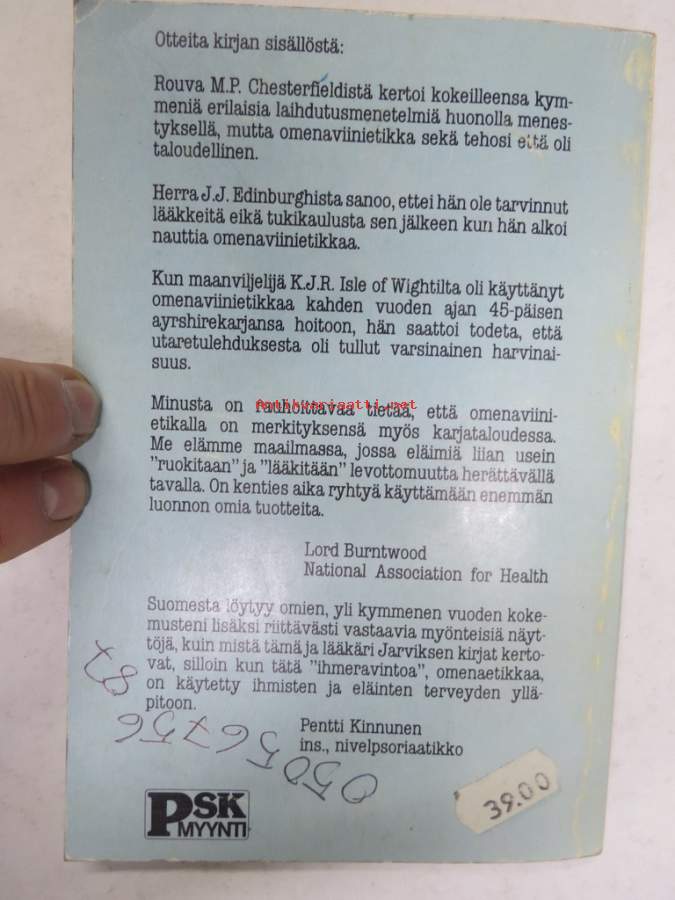 Otteita kirjan sisällöstä:
Rouva M.P. Chesterfieldistä kertoi kokeilleensa kym-
meniä erilaisia laihdutusmenetelmiä huonolla menes-
tyksellä, mutta omenaviinietikka sekä tehosi että oli
taloudellinen.
Herra J.J. Edinburghista sanoo, ettei hän ole tarvinnut
lääkkeitä eikä tukikaulusta sen jälkeen kun hän alkoi
nauttia omenaviinietikkaa.
Kun maanviljelijä K.J.R. Isle of Wightilta oli käyttänyt
omenaviinietikkaa kahden vuoden ajan 45-päisen
ayrshirekarjansa hoitoon, hän saattoi todeta, että
utaretulehduksesta oli tullut varsinainen harvinai-
suus.
Minusta on rauhoittavaa tietää, että omenaviini-
etikalla on merkityksensä myös karjataloudessa.
Me elämme maailmassa, jossa eläimiä liian usein
"ruokitaan" ja "lääkitään" levottomuutta herättävällä
tavalla. On kenties aika ryhtyä käyttämään enemmän
luonnon omia tuotteita.
Lord Burntwood
National Association for Health
Suomesta löytyy omien, yli kymmenen vuoden koke-
musteni lisäksi riittävästi vastaavia myönteisiä näyt-
töjä, kuin mistä tämä ja lääkäri Jarviksen kirjat kerto-
vat, silloin kun tätä "ihmeravintoa", omenaetikkaa,
on käytetty ihmisten ja eläinten terveyden yllä-
pitoon.
Pentti Kinnunen
ins., nivelpsoriaatikko
PSK
MYYNTI
39.00
Antikvariaatti.net